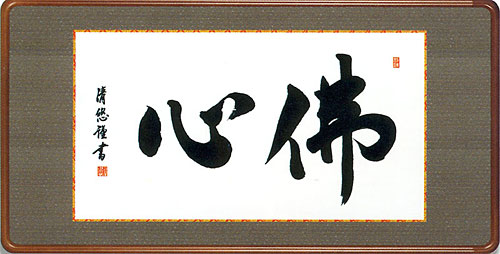 佛心
清悠謹書